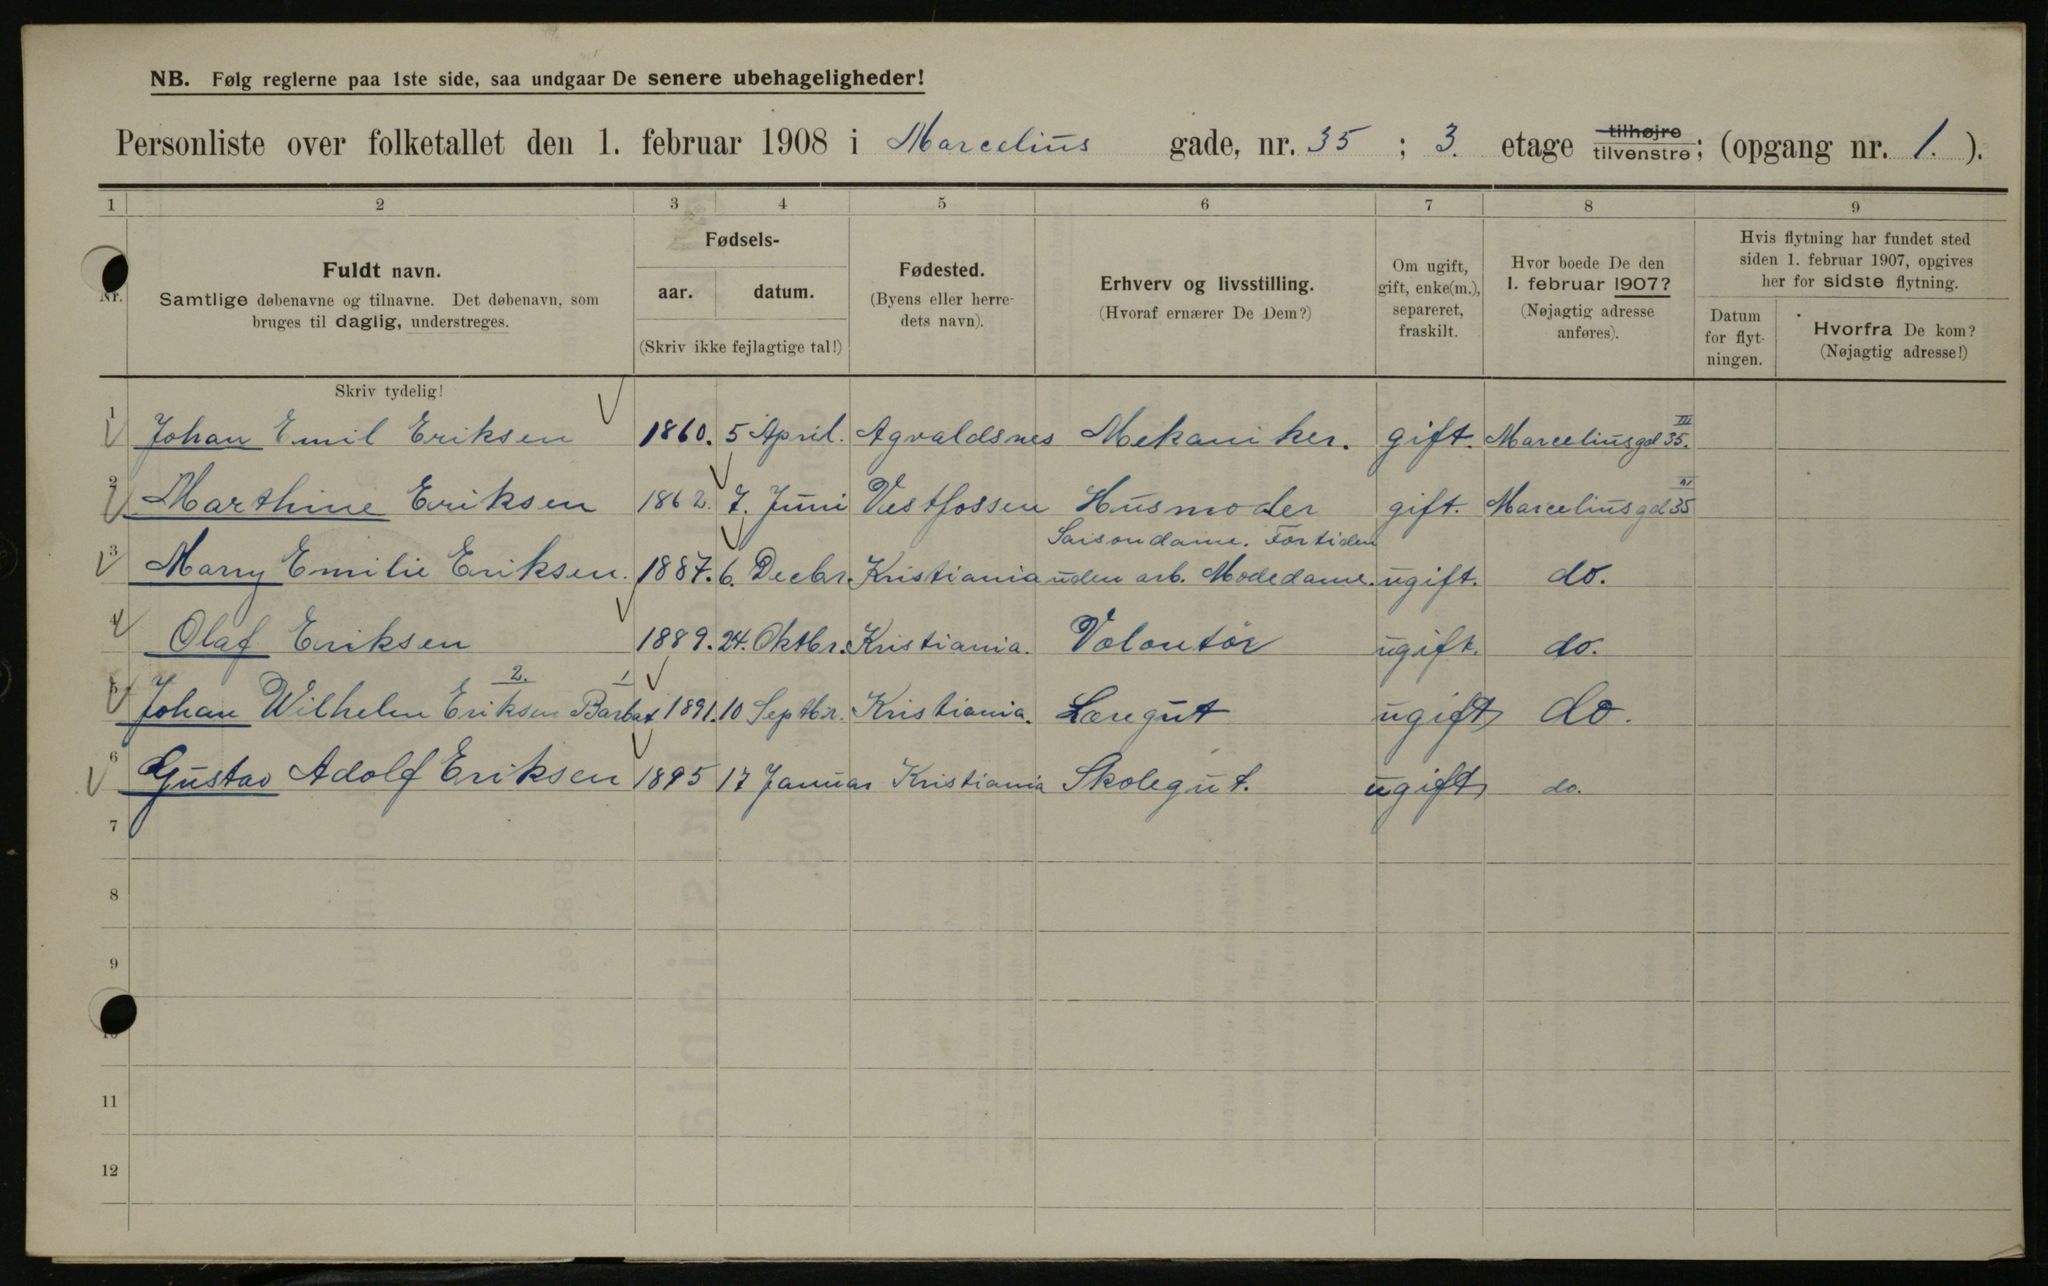 NB. Følg reglerne paa 1ste side, saa undgaar De senere ubehageligheder!
Personliste over folketallet den 1. februar 1908 i Marcelius gade, nr. 35 ; 3. etage tilhøjre tilvenstre; (opgang nr. 1. ).
1 2 3 4 5 6 7 8 9
Nr.
Fuldt navn.
Samtlige døbenavne og tilnavne. Det døbenavn, som
bruges til daglig, understreges.
Fødsels-
aar. datum.
(Skriv ikke fejlagtige tal!)
Fødested.
(Byens eller herre-
dets navn).
Erhverv og livsstilling.
(Hvoraf ernærer De Dem?)
Om ugift,
gift, enke(m.),
separeret,
fraskilt.
Hvor boede De den
1. februar 1907?
(Nøjagtig adresse
anføres).
Hvis flytning har fundet sted
siden 1. februar 1907, opgives
her for sidste flytning.
Datum
for flyt-
ningen.
Hvorfra De kom?
(Nøjagtig adresse!)
Skriv tydelig!
1 Johan Emil Eriksen 1860. 5 April. Agvaldsnes Mekaniker. gift. Marceliusgd 35. III
2 Marthine Eriksen 1862. 7. Juni Vestfossen Husmoder gift. Marceliusgd 35
Saisondame. Fortiden
3 Marry Emilie Eriksen. 1887. 6. Decbr. Kristiania uden arb. Modedame. ugift. do.
4 Olaf Eriksen 1889. 24. Oktbr. Kristiania. Volontør ugift. do.
2. 1
5 Johan Wilhelm Eriksen 1891. 10 Septbr. Kristiania. Læregut ugift do.
6 Gustav Adolf Eriksen 1895 17 Januar Kristiania Skolegut. ugift do.
7
8
9
10
11
12